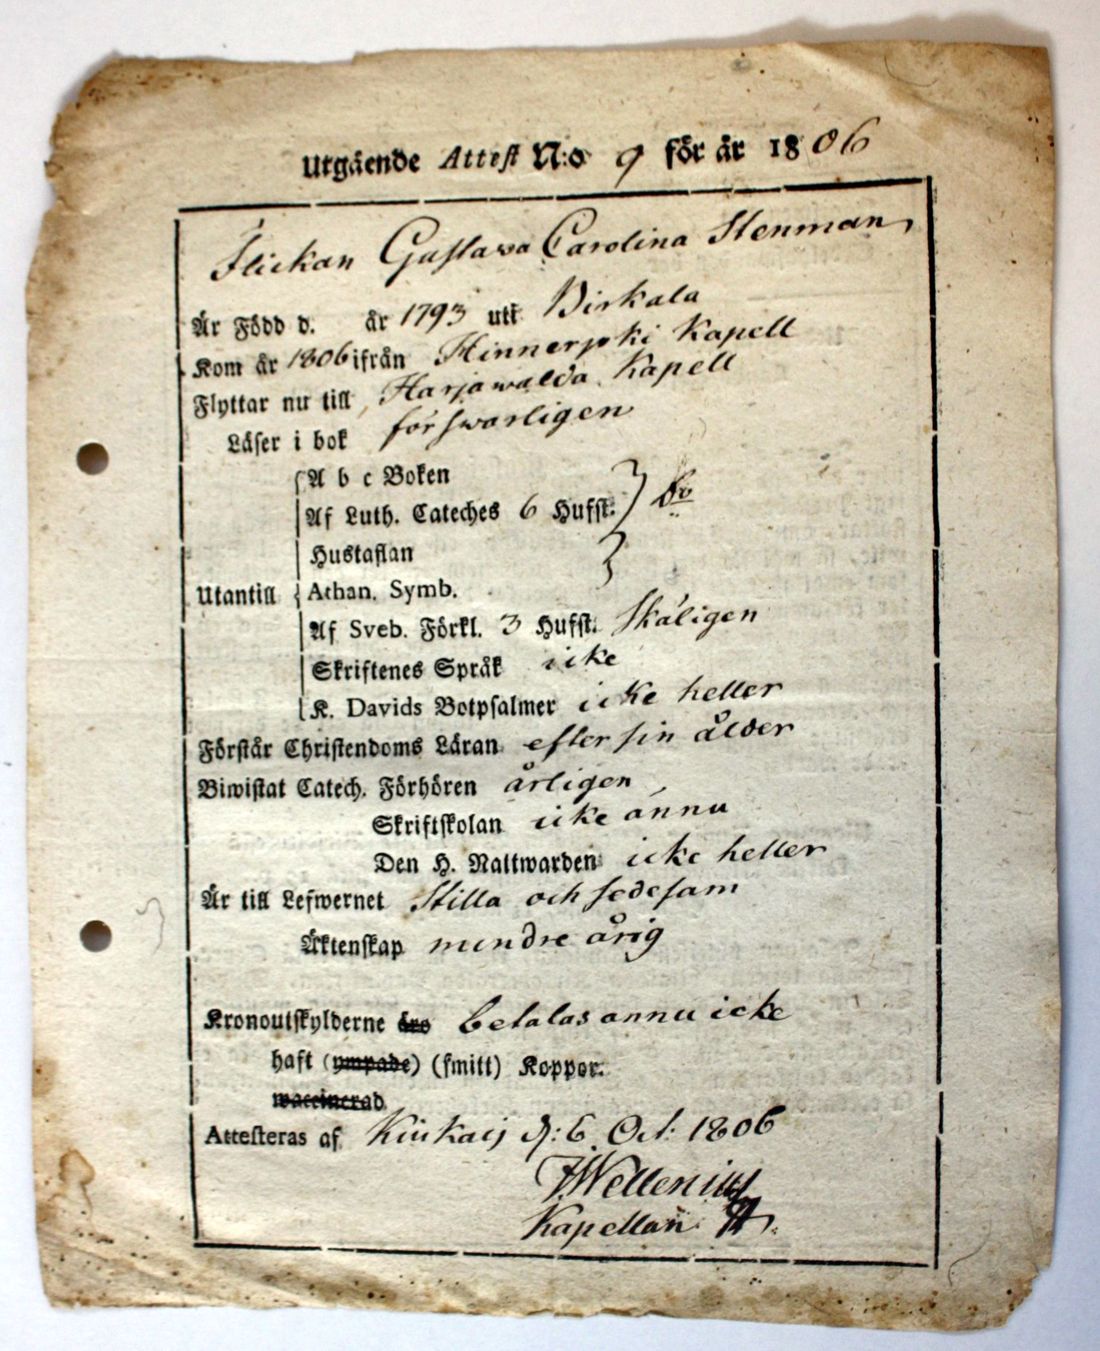 Utgående Attest N:o 9 för år 1806
Flickan Gustawa Carolina Stenman,
Är Född d. år 1793 uti Birkala
Kom år 1806 ifrån Hinnerjoki Kapell
Flyttar nu till, Harjawalda Kapell
Läser i bok förswarligen
A b c Boken
Af Luth. Cateches 6 Hufst.
Hustaflan
Utantill Athan. Symb.
Af Sveb. Förkl. 3 Hufst. Skäligen
Skriftenes Språk icke
K. Davids Botpsalmer icke heller
Förstår Christendoms Läran efter sin ålder
Biwistat Catech. Förhören årligen
Skriftskolan icke ännu
Den H. Nattwarden icke heller
Är till Lefwernet Stilla och sedesam
Äktenskap mindre årig
Kronoutskylderne äro betalas ännu icke
haft (ympade) (smitt) Koppor.
waccinerad
Attesteras af Kiukais d: 6 Oct: 1806
Wellenius
Kapellan